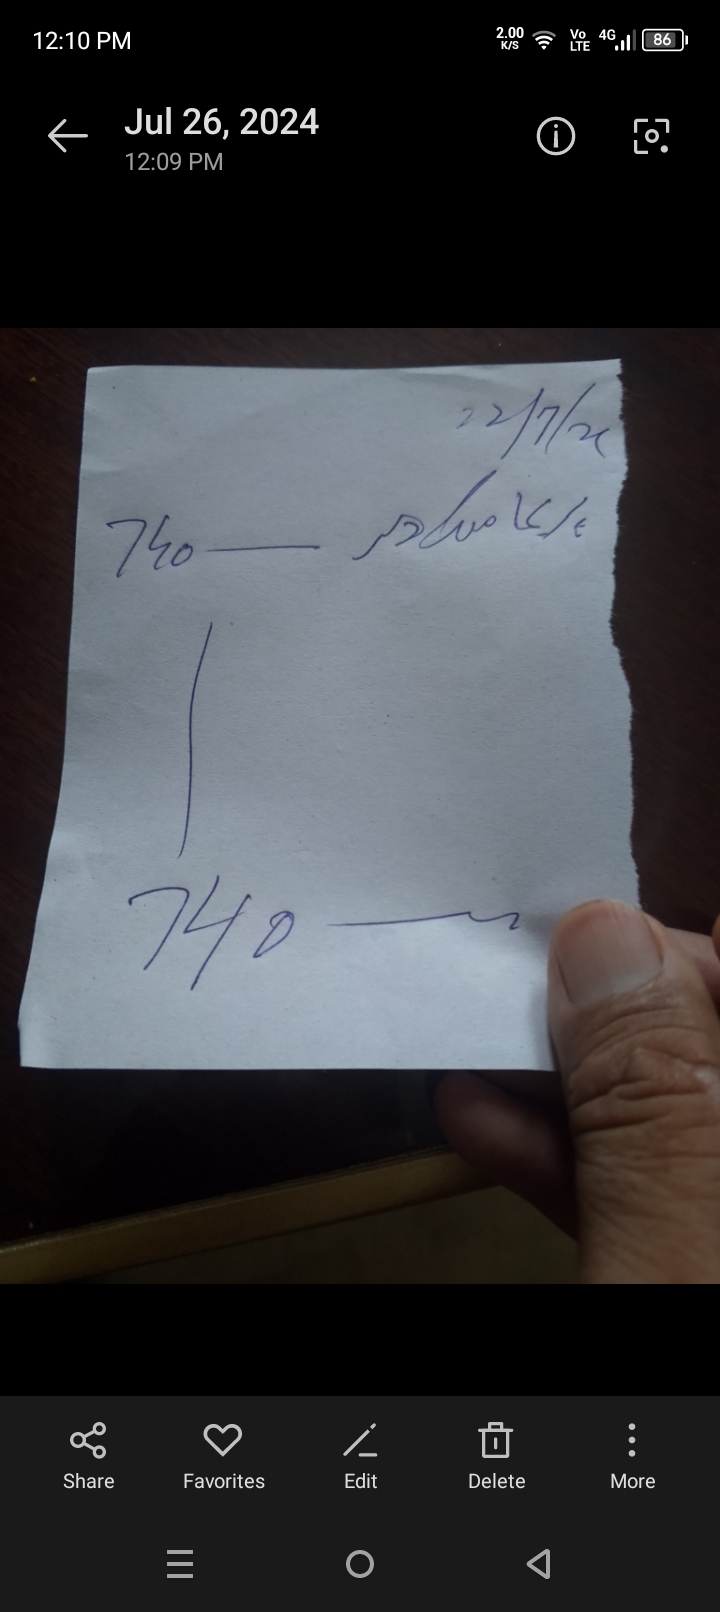 12:10 PM 2.00 K/S Vo LTE 4G 86
Jul 26, 2024
12:09 PM
22/7/24
740 —
740 —
Share Favorites Edit Delete More